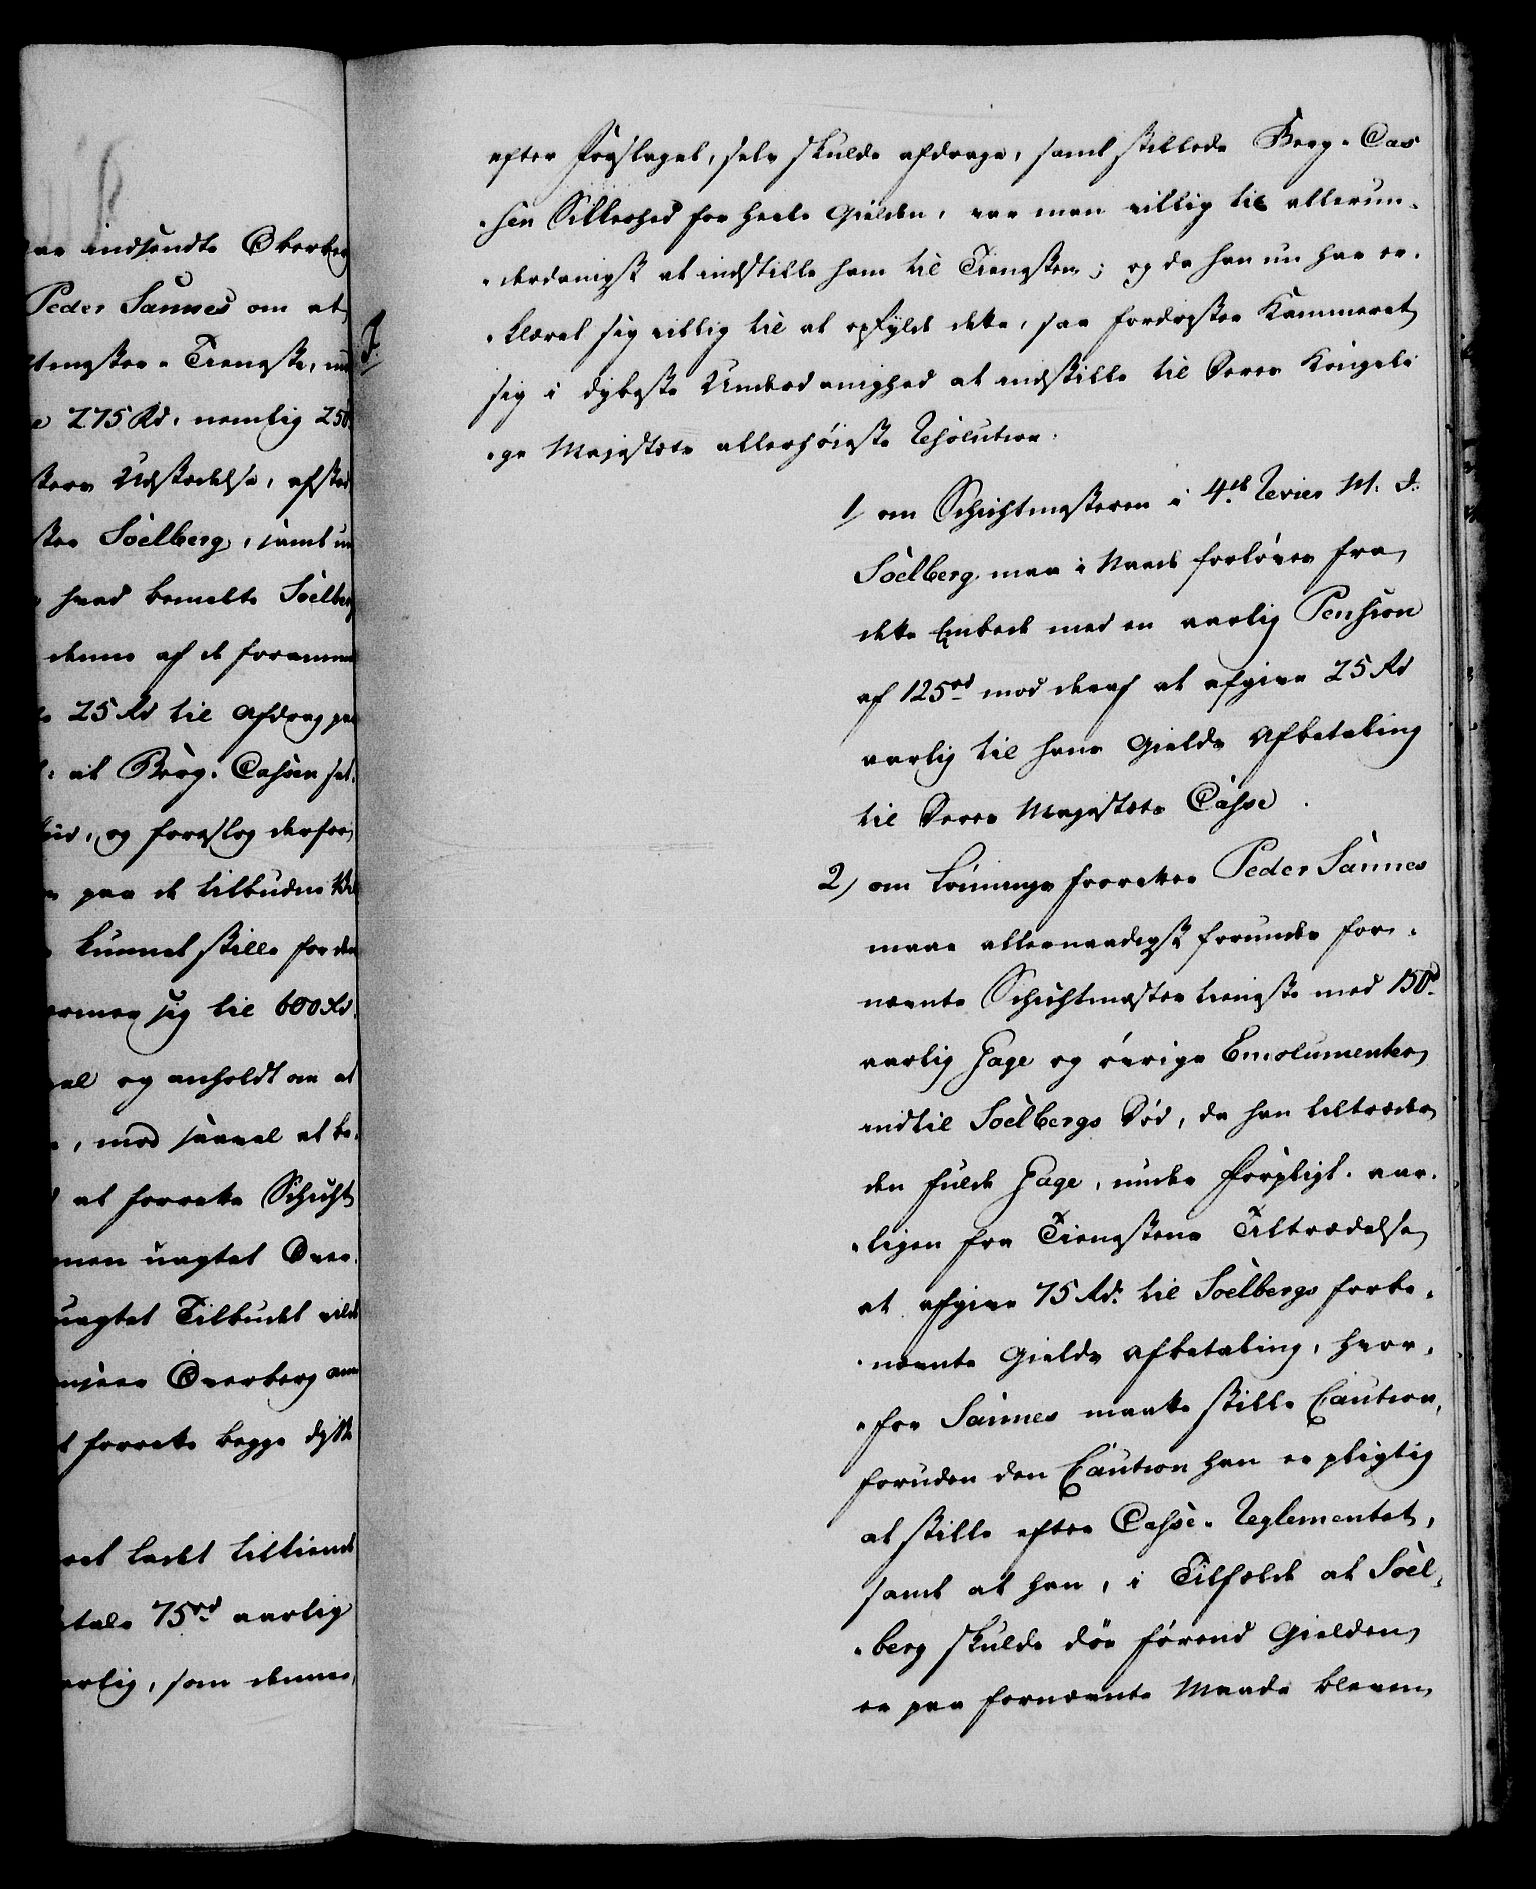 aa indsendte Oberberg
Peder Sannes om at
tmester-Tieneste, u
e 275 Rd. nemlig 250
sters Udstædelse, afsked
ster Soelberg, samt u
hvad bemelte Soelberg
denne af de forommel
25 Rd til Afdrag paa
at Berg-Cassen sel
og foreslog derfor
paa de tilbudne Vil
kunnet stille for den
sig til 600 Rd.
og anholdt om at
, mod saavel at be
at forrette Schicht
men uagtet Over
uagtet Tilbudet vilde
Overberg am
forrette begge disse
ladet tilkiende
tale 75 rd aarlig
aarlig, som denne,
efter Forslaget, selv skulde afdrage, samt stillede Berg-Cas
-sen Sikkerhed for heele Gielden, var man villig til allerun-
-derdanigst at indstille ham til Tienesten; og da han nu har er-
-klæret sig villig til at opfylde dette, saa fordrister Kammeret
sig i dybeste Underdanighed at indstille til Deres Kongeli
-ge Majestæts allerhöieste Resolution:
1/ om Schichtmesteren i 4de Revier M. J.
Soelberg maa i Naade forløves fra
dette Embede med en aarlig Pension
af 125 rd mod deraf at afgive 25 Rd
aarlig til hans Gields Afbetaling
til Deres Majestæts Casse.
2/ om Lönnings forretter Peder Sannes
maae allernaadigst forundes for-
nevnte Schichtmester tieneste med 150 rd
aarlig Gage og övrige Emolumenter
indtil Soelbergs Död, da han tiltræder
den fulde Gage, under Forpligt. aar-
-ligen fra Tienestens Tiltrædelse
at afgive 75 Rd. til Soelbergs forbe-
-nevnte Gields Afbetaling, hvor-
-for Sannes maatte stille Caution,
foruden den Caution han er pligtig
at stille efter Casse-Reglementet,
samt at han, i Tilfælde at Soel-
-berg skulde döe förend Gielden
er paa fornevnte Maade bleven